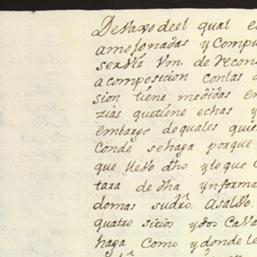 Devajo de el qual es
amojonadas y Compu
servir Vm. de recono
a composicion con las d
sion tiene medidas en
zias que tiene echas y
embargo de quales quie
Conde se haga porque
que llebo dho y lo que
tara de dha ynforma
domas su dro. A saldo.
quatro sitios y dos Cava
haga Como y donde le